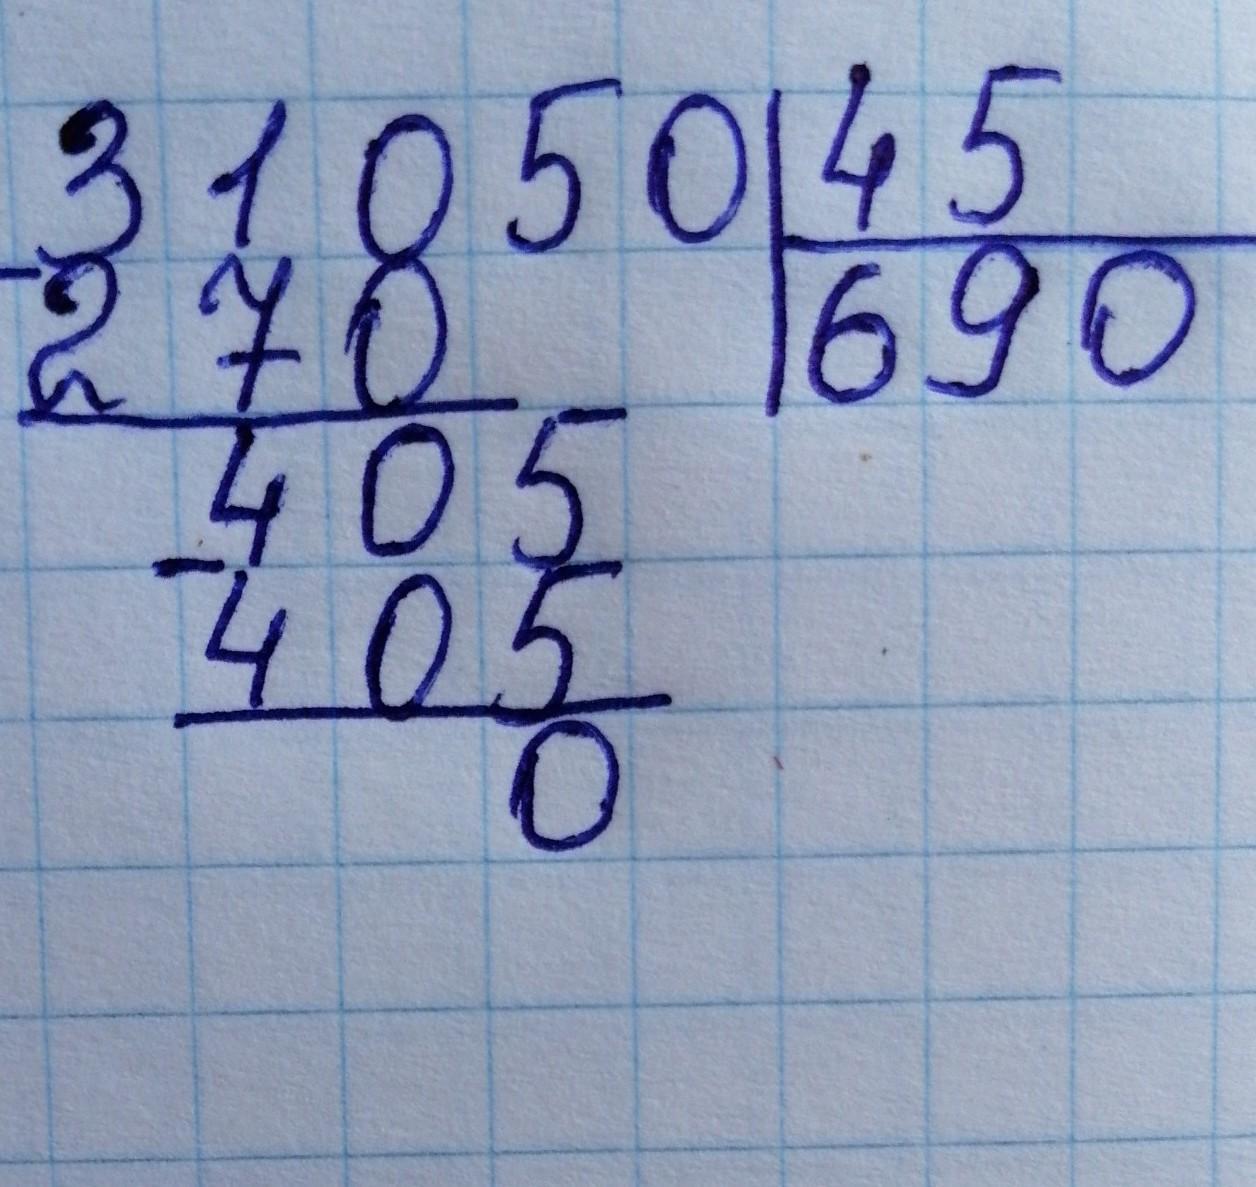 31050 45
- 270 690
405
- 405
0